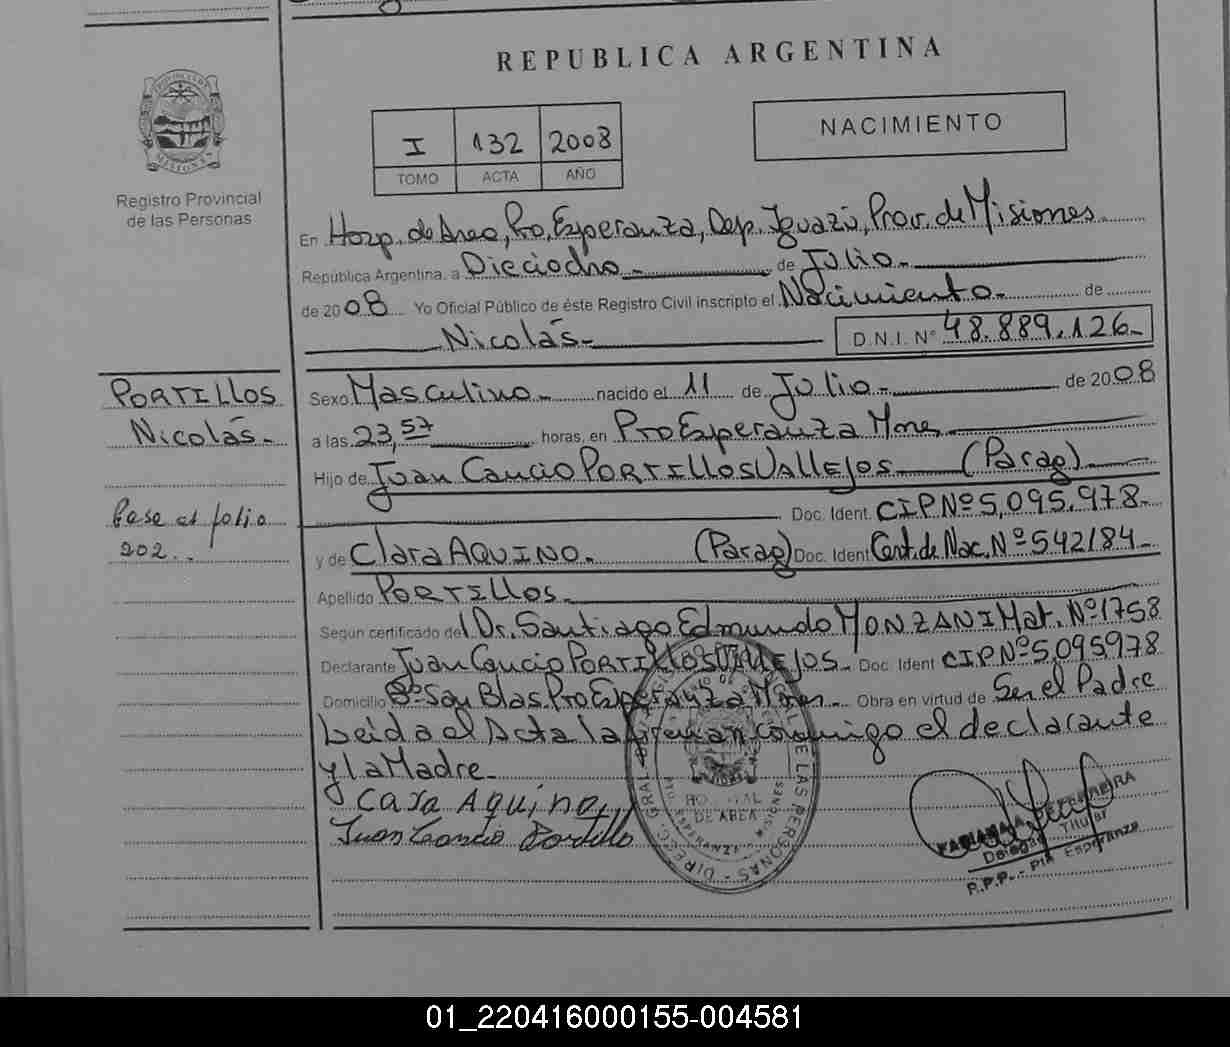 REPUBLICA ARGENTINA
PROVINCIA DE MISIONES
Registro Provincial
de las Personas
I 132 2008
TOMO ACTA AÑO
NACIMIENTO
En Hosp. de Area, Pto. Esperanza, Dep. Iguazú, Prov. de Misiones
República Argentina, a Dieciocho de Julio
de 2008 Yo Oficial Público de éste Registro Civil inscripto el Nacimiento de
Nicolás D.N.I. Nº 48.889.126
PORTILLOS
Nicolás
Pase al folio
202
Sexo Masculino nacido el 11 de Julio de 2008
a las 23,57 horas, en Pto Esperanza Mnes
Hijo de Juan Cancio PORTILLOS VALLEJOS (Parag)
Doc. Ident. CIP Nº 5,095,978
y de Clara AQUINO. (Parag) Doc. Ident Cert. de Nac. Nº 542/84
Apellido PORTILLOS
Según certificado del Dr. Santiago Edmundo MONZANI Mat. Nº 1758
Declarante Juan Cancio PORTILLOS VALLEJOS Doc. Ident CIP Nº 5095978
Domicilio Bº San Blas Pto Esperanza Mnes Obra en virtud de Ser el Padre
Leida el Acta la firman conmigo el declarante
y la Madre
Cara Aquino
Juan Cancio Portillo
HOSPITAL
DE AREA
ESPERANZA - MISIONES
DIREC. GRAL. DE LAS PERSONAS
FABIANA A. FERREIRA
Delegada Titular
R.P.P. - Pto Esperanza
01_220416000155-004581